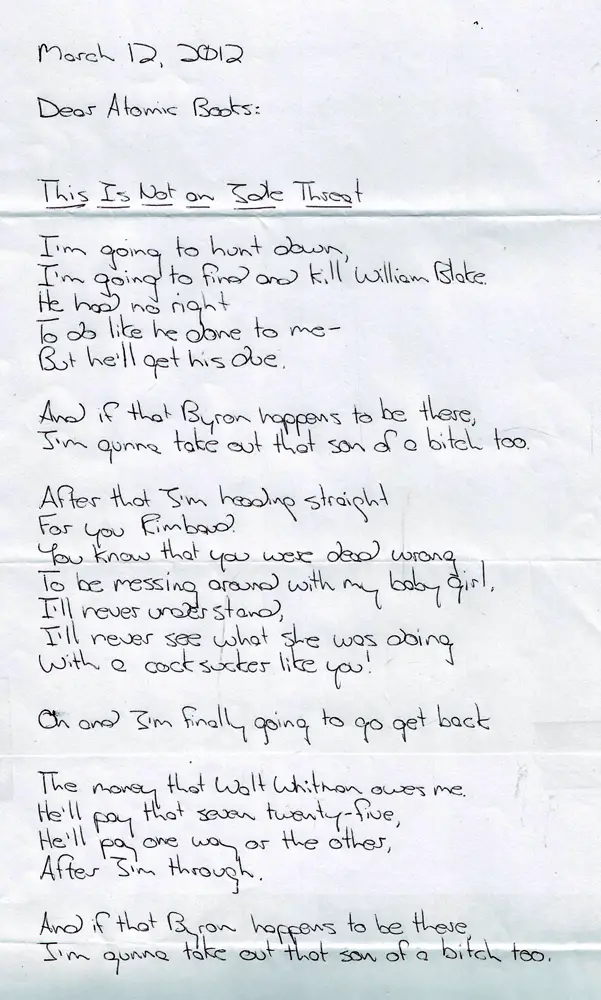 March 12, 2012
Dear Atomic Books:
This Is Not an Idle Threat
I'm going to hunt down,
I'm going to find and kill William Blake.
He had no right
To do like he done to me-
But he'll get his due.
And if that Byron happens to be there,
I'm gunna take out that son of a bitch too.
After that I'm heading straight
For you Rimbaud.
You know that you were dead wrong
To be messing around with my baby girl,
I'll never understand,
I'll never see what she was doing
With a cocksucker like you!
Oh and I'm finally going to go get back
The money that Walt Whitman owes me.
He'll pay that seven twenty-five,
He'll pay one way or the other,
After I'm through.
And if that Byron happens to be there,
I'm gunna take out that son of a bitch too.